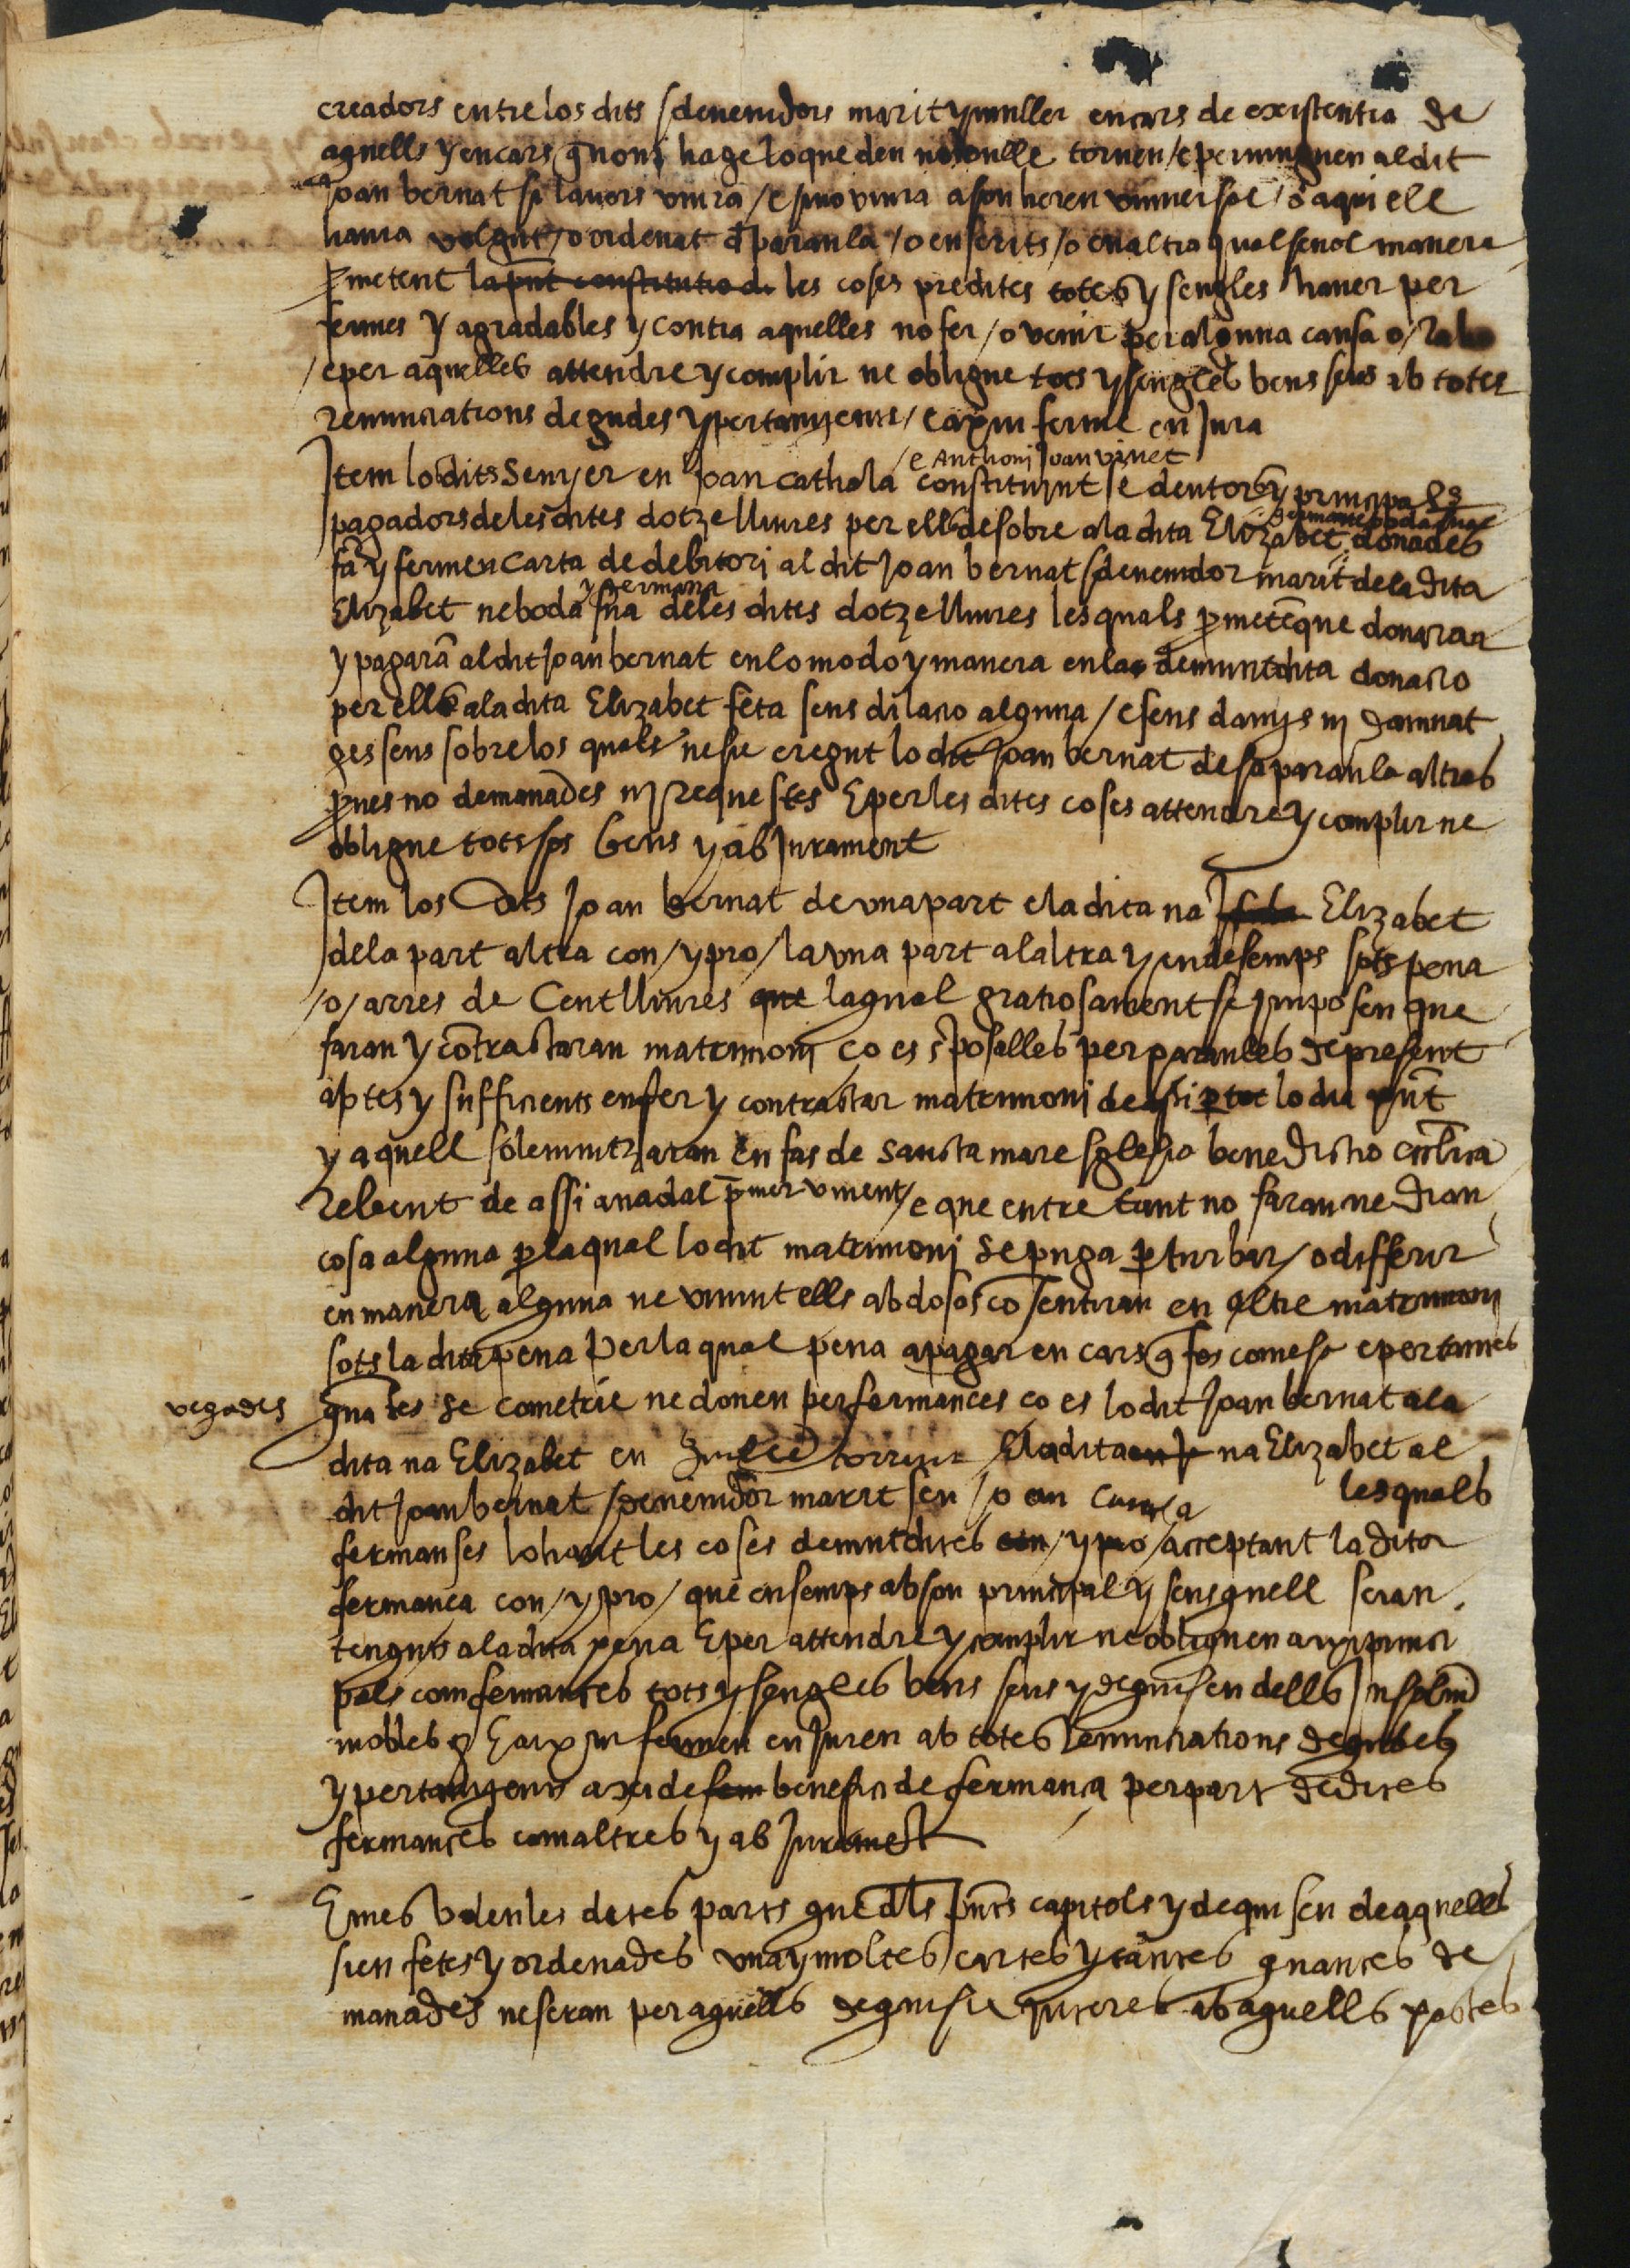 creadors entre los dits sdevenidors marit y muller en cars de existentia de
aquells y en cars q̄ noni hage lo que deu no vulle tornen / e pervinguen al dit
Joan bernat si lavors viura / e si no viura a son hereu universal / o aqui ell
haura volgut / o ordenat d̄ paraula / o en scrits / o en altra qualsevol manera
p̄metent la pn̄t constitutio de les coses predites totes y sengles haver per
fermes y agradables y contra aquelles no fer / o venir per alguna causa o / raho
/ e per aquelles attendre y complir ne obligue tots y sengles bens seus ab totes
renunciations degudes y pertanyents / e axiu ferme en Jura
/ e Anthoni Joan vinet
Item lo dits Senyer en Joan cathala constituint se deutors y principals
pagadors de les dites dotze lliures per ells desobre a la dita Elizabet donades
fā y fermen carta de debitori al dit Joan bernat sdevenidor marit de la dita
y germana
Elizabet neboda sua de les dites dotze lliures les quals p̄meten que donaran
y pagarā al dit Joan bernat en lo modo y manera en la demuntdita donacio
per ells a la dita Elizabet feta sens dilacio alguna / e sens danys ni damnat
ges seus sobre los quals ne sie cregut lo dit Joan bernat de sa paraula altres
p̄ves no demanades ni requestes E per les dites coses attendre y complir ne
obligue tots sos bens y ab Jurament
Item los dits Joan bernat de una part e la dita na Elizabet
de la part altra con / y pro / la una part a l altra y endesemps sots pena
/ o / arres de Cent lliures que la qual gratiosament se imposen que
faran y cōtractaran matrimoni ço es sposalles per paraules de present
aptes y sufficients en fer y contractar matrimoni de assi p̄ tot lo dia pn̄t
y aquell solemnitzaran en fas de sancta mare sglesia benedictio
rebent de assi a nadal p̄mer vinent / e que entre tant no faran ne diran
cosa alguna p̄ la qual lo dit matrimoni se puga p̄turbar / o differir
en manera alguna ne vivint ells abdosos cōsentiran en altre matrimoni
sots la dita pena Per la qual pena a pagar en cars q̄ fos comesa e per tantes
vegades
quātes se cometrie ne donen per fermances ço es lo dit Joan bernat a la
dita na Elizabet en E la dita na Elizabet al
dit Joan bernat sdevenidor marit seu Joan les quals
fermanses lohant les coses demuntdites con / y pro / acceptant la dita
fermança con / y pro / que ensemps ab son principal y sens quell seran
tenguts a la dita pena E per attendre y complir ne obliguen axi princi
pals com fermances tots y sengles bens seus y de quisen dells Insolid̄
mobles E axiu fermen en Juren ab totes renunciations degudes
y pertanyents axi de benefici de fermança per part de dites
fermances com altres y ab Jurament
E mes volen les dites parts que dls pn̄ts capitols y de qui sen de aquells
sien fetes y ordenades una y moltes cartes y tantes quantes de
manades ne seran per aquells de qui sie interes ab aquells pactes